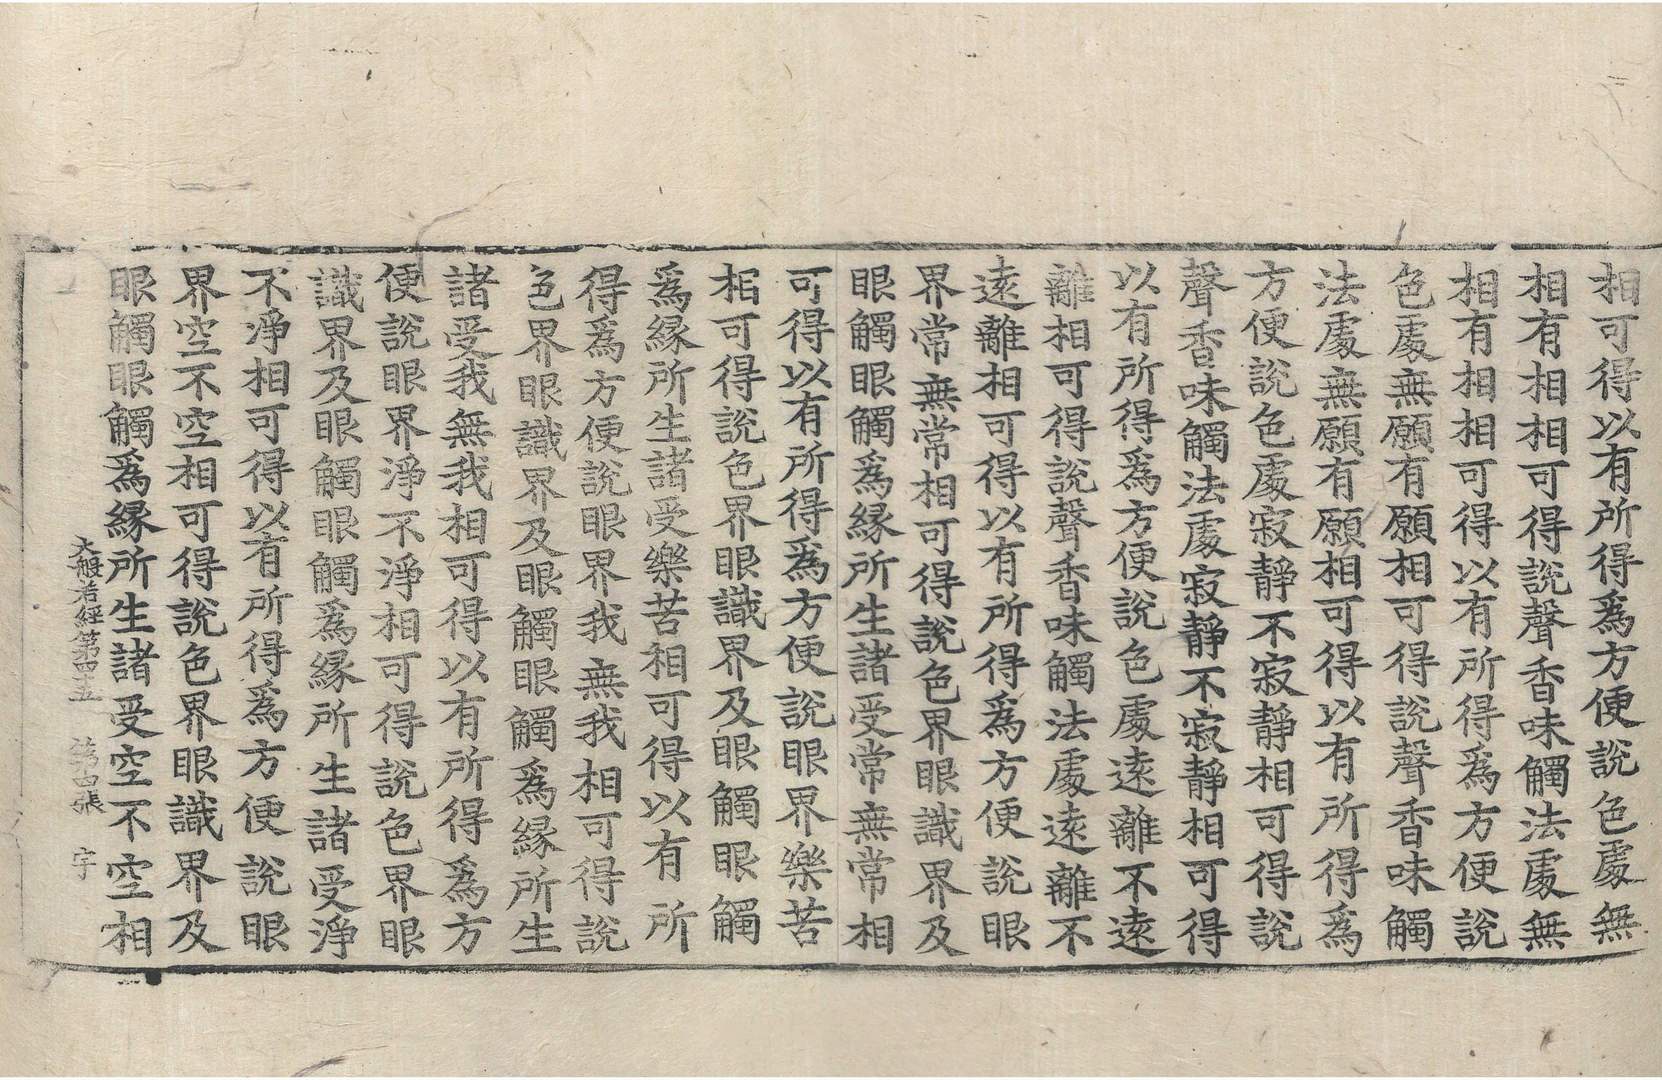 相可得以有所得爲方便說色處無
相有相相可得說聲香味觸法處無
相有相相可得以有所得爲方便說
色處無願有願相可得說聲香味觸
法處無願有願相可得以有所得爲
方便說色處寂靜不寂靜相可得說
聲香味觸法處寂靜不寂靜相可得
以有所得爲方便說色處遠離不遠
離相可得說聲香味觸法處遠離不
遠離相可得以有所得爲方便說眼
界常無常相可得說色界眼識界及
眼觸眼觸爲緣所生諸受常無常相
可得以有所得爲方便說眼界樂苦
相可得說色界眼識界及眼觸眼觸
爲緣所生諸受樂苦相可得以有所
得爲方便說眼界我無我相可得說
色界眼識界及眼觸眼觸爲緣所生
諸受我無我相可得以有所得爲方
便說眼界淨不淨相可得說色界眼
識界及眼觸眼觸爲緣所生諸受淨
不淨相可得以有所得爲方便說眼
界空不空相可得說色界眼識界及
眼觸眼觸爲緣所生諸受空不空相
大般若經第四十五 第四張 宇